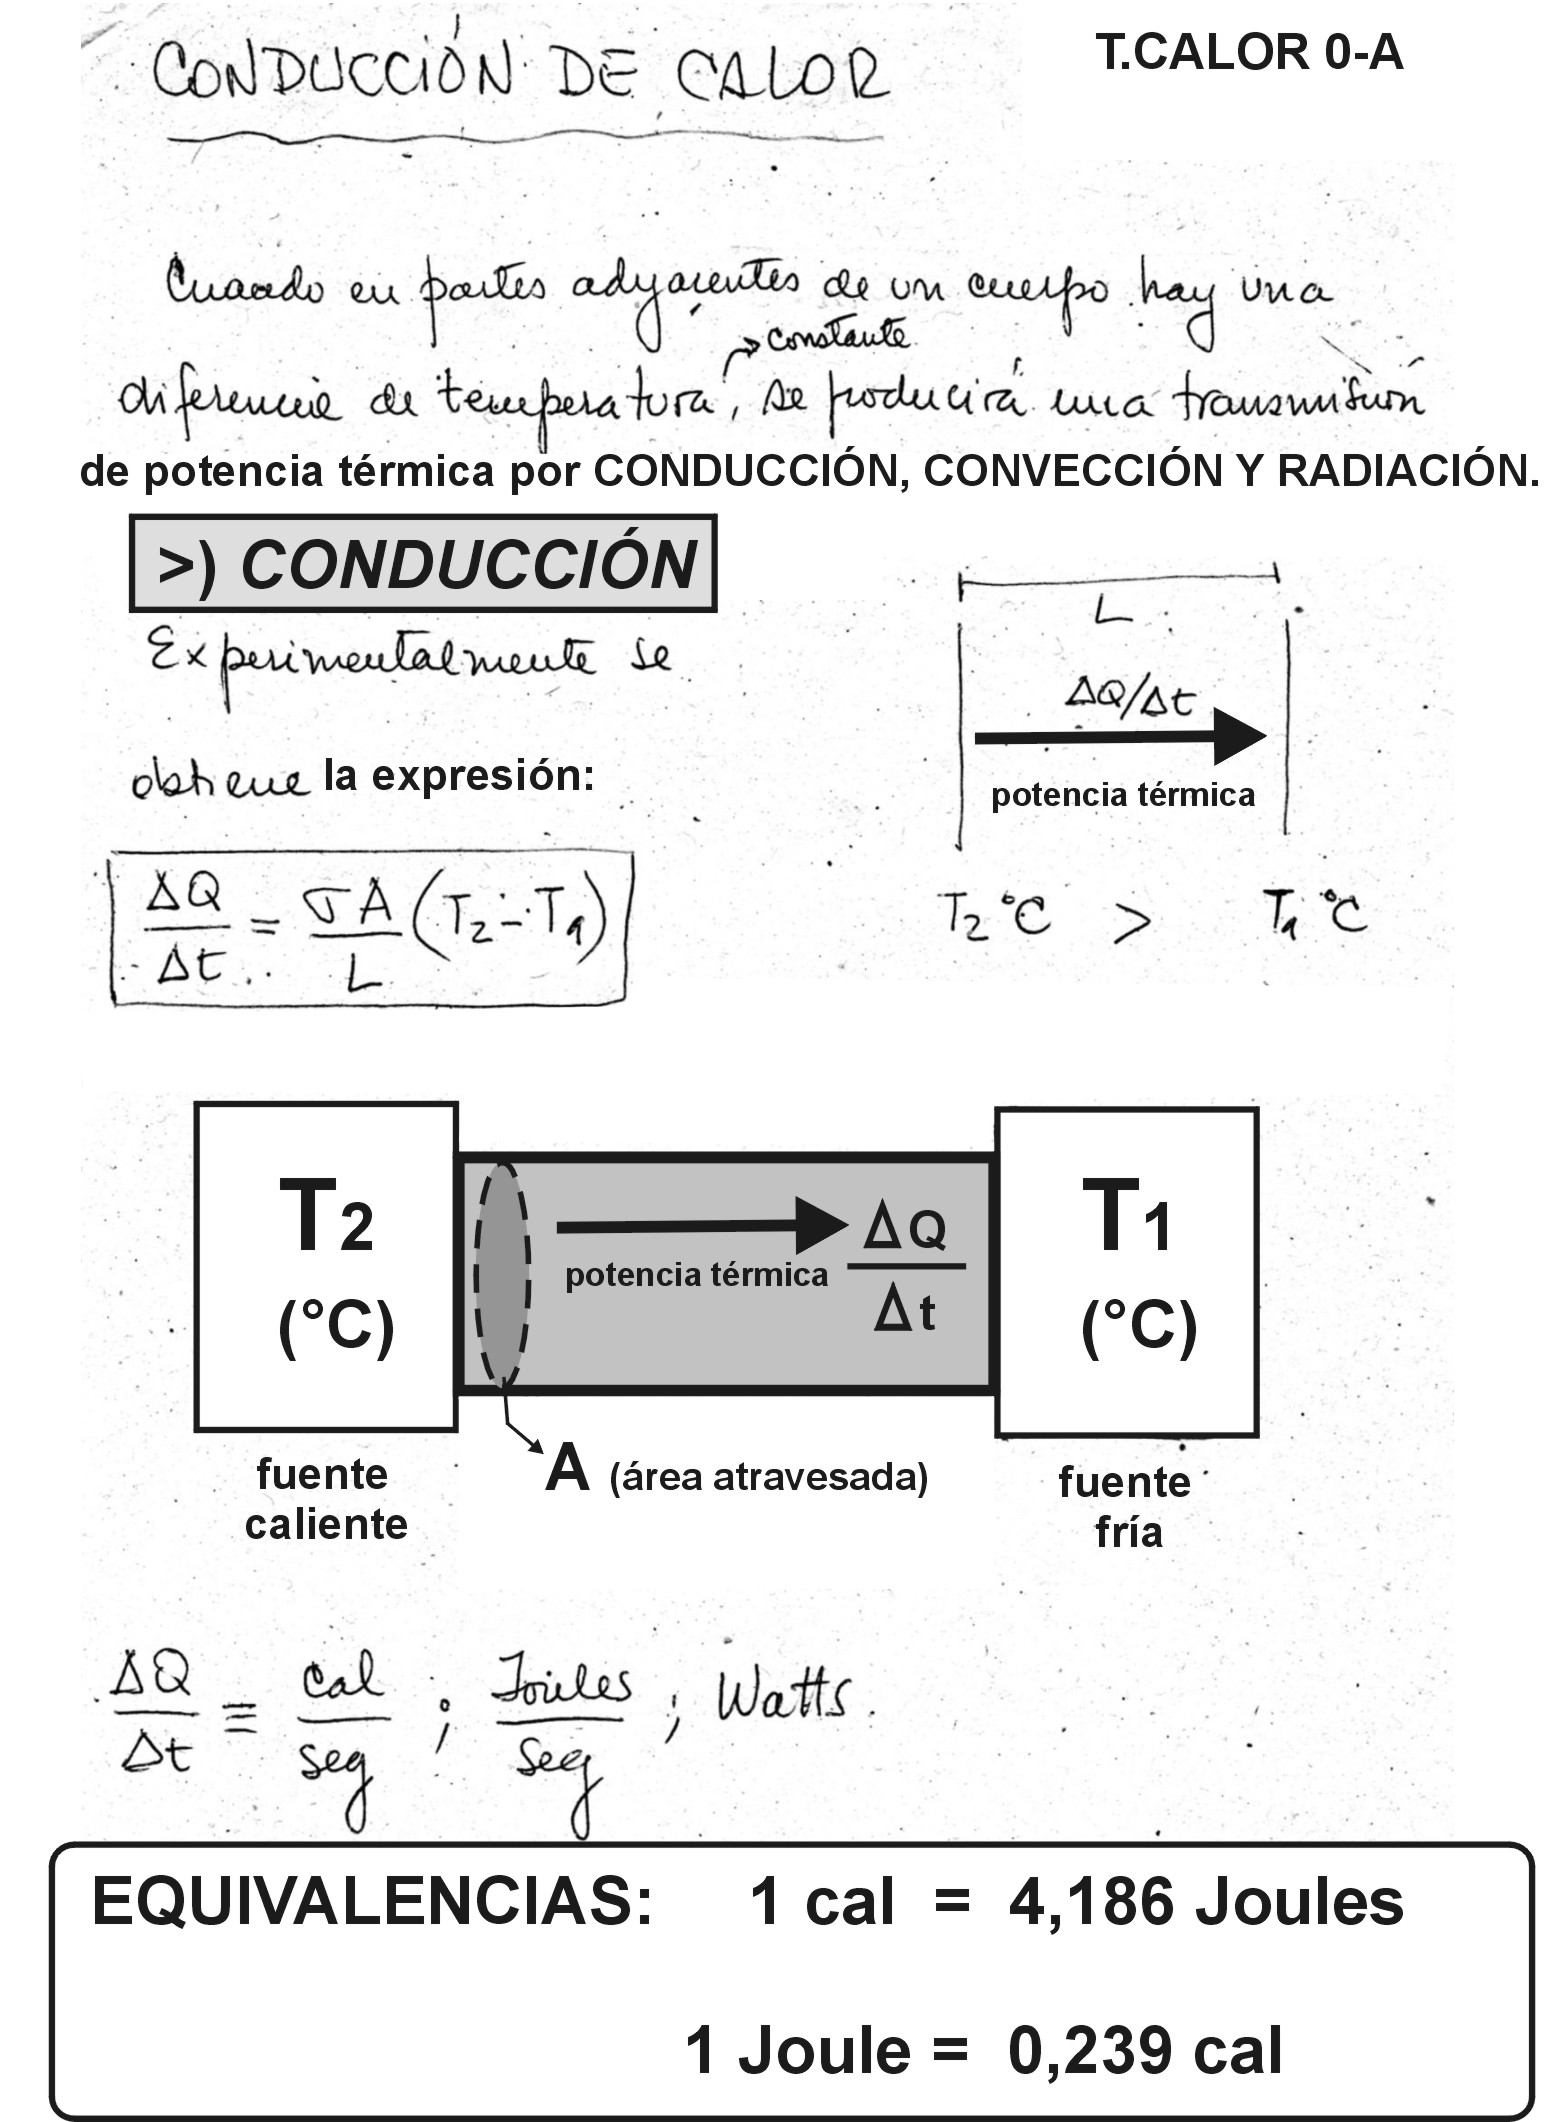 CONDUCCIÓN DE CALOR
T.CALOR 0-A
Cuando en partes adyacentes de un cuerpo hay una
constante
diferencia de temperatura, se producirá una transmisión
de potencia térmica por CONDUCCIÓN, CONVECCIÓN Y RADIACIÓN.
>) CONDUCCIÓN
Experimentalmente se
obtiene la expresión:
L
ΔQ/Δt
potencia térmica
ΔQ/Δt = σA/L (T2 - T1)
T2 °C > T1 °C
T2
(°C)
potencia térmica
ΔQ
Δt
T1
(°C)
A (área atravesada)
fuente
caliente
fuente
fría
ΔQ/Δt ≡ cal/seg ; Joules/seg ; Watts.
EQUIVALENCIAS: 1 cal = 4,186 Joules
1 Joule = 0,239 cal